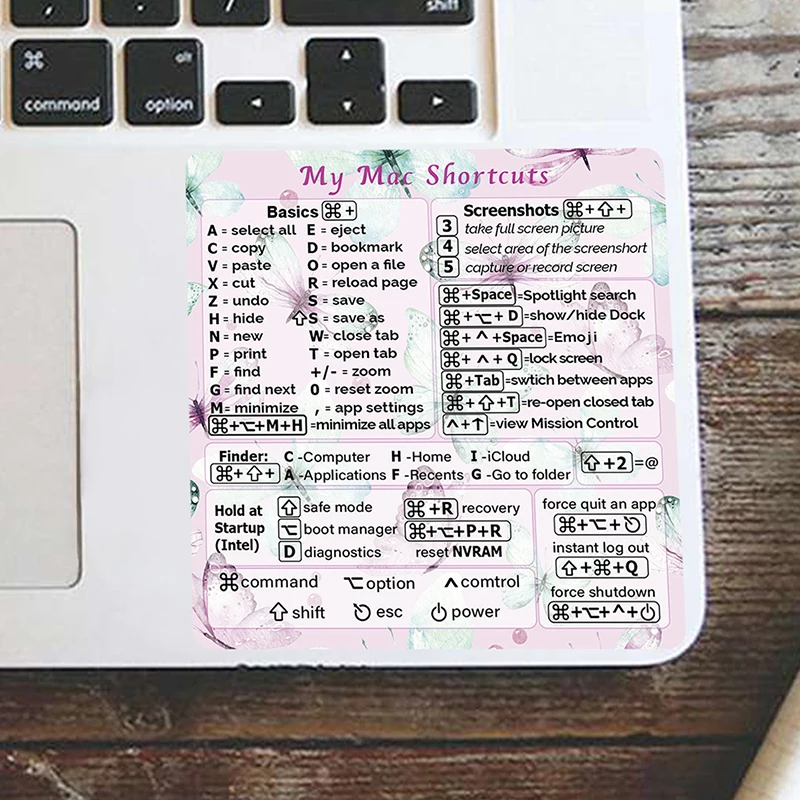 shift
⌘
alt
command
option
My Mac Shortcuts
Basics ⌘+
A = select all E = eject
C = copy D = bookmark
V = paste O = open a file
X = cut R = reload page
Z = undo S = save
H = hide ⇧S = save as
N = new W= close tab
P = print T = open tab
F = find +/- = zoom
G = find next 0 = reset zoom
M= minimize , = app settings
⌘+⌥+M+H =minimize all apps
Screenshots ⌘+⇧+
3 take full screen picture
4 select area of the screenshort
5 capture or record screen
⌘+Space=Spotlight search
⌘+⌥+ D=show/hide Dock
⌘+ ^ +Space=Emoji
⌘+ ^ + Q=lock screen
⌘+Tab=swtich between apps
⌘+⇧+T=re-open closed tab
^+↑=view Mission Control
Finder: C -Computer H -Home I -iCloud
⌘+⇧+ A -Applications F -Recents G -Go to folder
⇧+2=@
Hold at
Startup
(Intel)
⇧ safe mode ⌘+R recovery
⌥ boot manager ⌘+⌥+P+R
D diagnostics reset NVRAM
force quit an app
⌘+⌥+⎋
instant log out
⇧+⌘+Q
force shutdown
⌘+⌥+^+⏻
⌘command ⌥option ^comtrol
⇧shift ⎋ esc ⏻ power